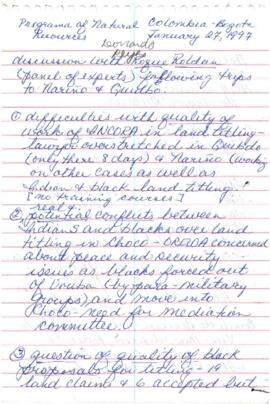 Programa of Natural Colombia - Bogota
Resources January 27, 1997
discussion with Roque Roldan
(panel of experts) following trips
to Nariño & Quibdo.
① difficulties with quality of
work of INCORA in land titling -
lawyers overstretched in Quibdo
(only there 8 days) & Nariño (working
on other cases as well as
Indian & black land titling.
[no training courses]
② potential conflicts between
Indians and blacks over land
titling in Choco - OREWA concerned
about peace and security
issues as blacks forced out
of Uraba (by para-military
groups) and move into
Choco - need for mediation
committee.
③ question of quality of black
proposals for titling - 19
land claims & 6 accepted but -